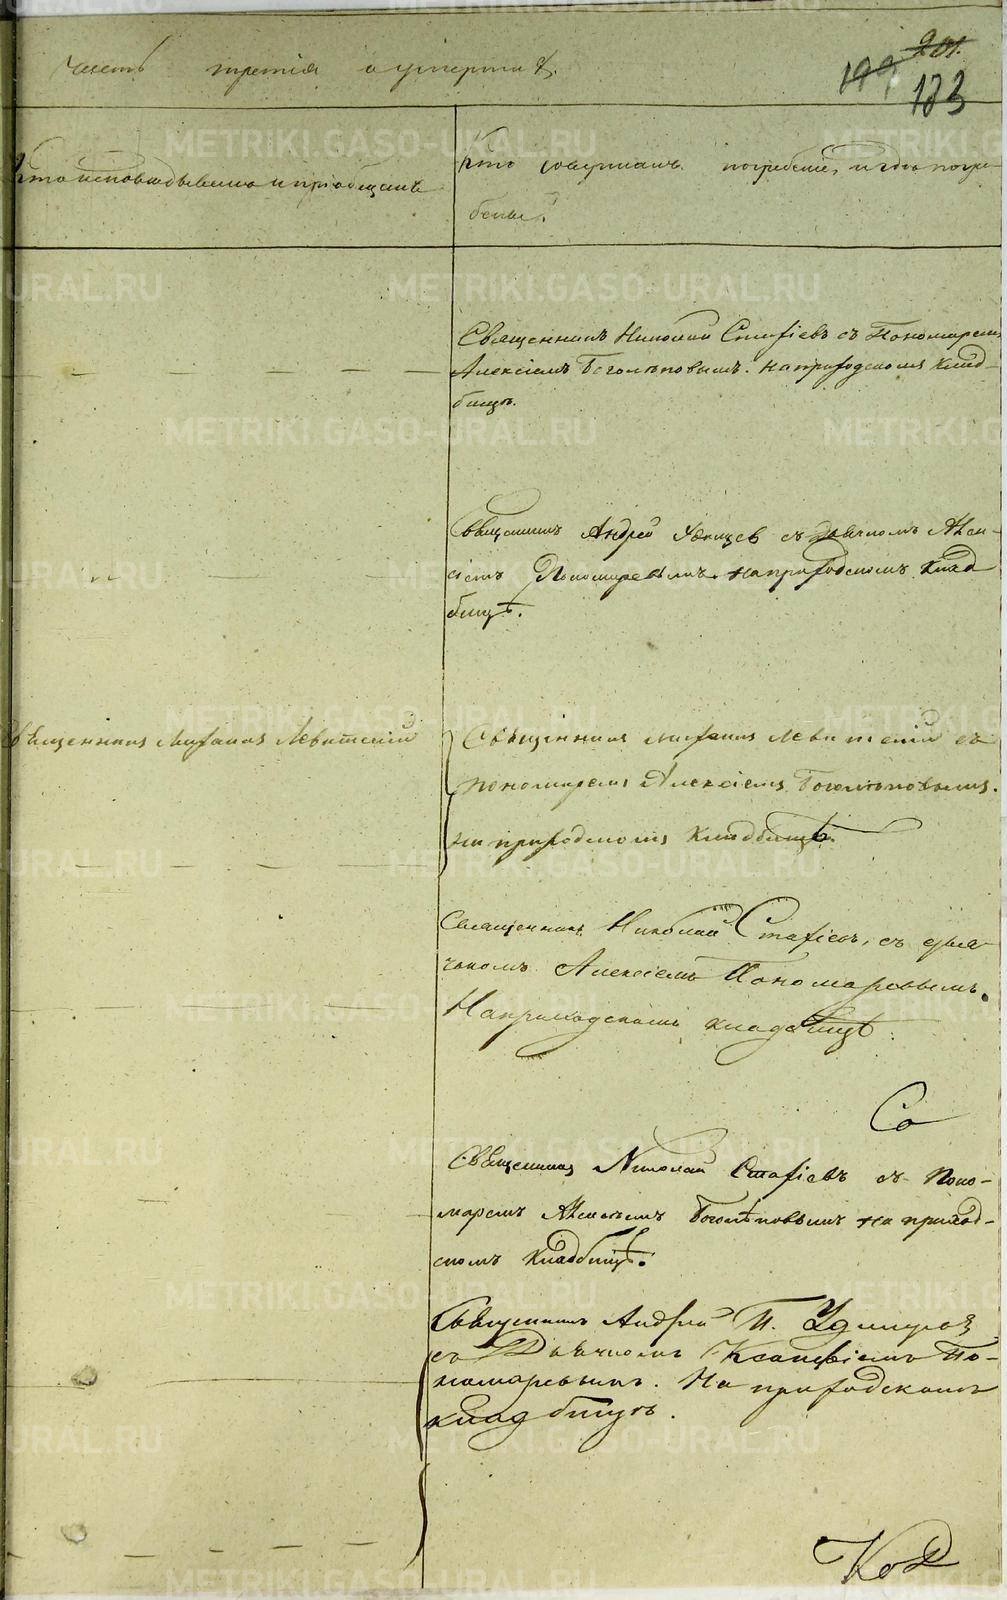 Часть третія о умершихъ.
201.
199
183
Кто исповѣдывалъ и пріобщалъ
Кто совершалъ погребеніе, и гдѣ погре-
бены.
Священникъ Николай Стафіевъ съ Пономаремъ
Алексіемъ Боголѣповымъ. На приходскомъ клад-
бищѣ.
Священникъ Андрей Удинцев съ дьячкомъ Алек-
сіемъ Пономаревымъ. На приходскомъ клад
бищѣ.
Священникъ Левитскій
Священникъ Левитскій съ
пономаремъ Алексіемъ Боголѣповымъ.
на приходскомъ кладбищѣ.
Священникъ Николай Стафіевъ, съ дья-
чкомъ Алексіемъ Пономаревымъ.
На приходскомъ кладбищѣ.
Со
Священникъ Николай Стафіевъ съ Поно-
маремъ Алексѣемъ Боголѣповымъ на приход-
скомъ кладбищѣ.
Священникъ Андрей П. Удинцов
съ Дьячкомъ По-
номаревымъ. На приходскомъ
кладбищѣ.
METRIKI.GASO-URAL.RU